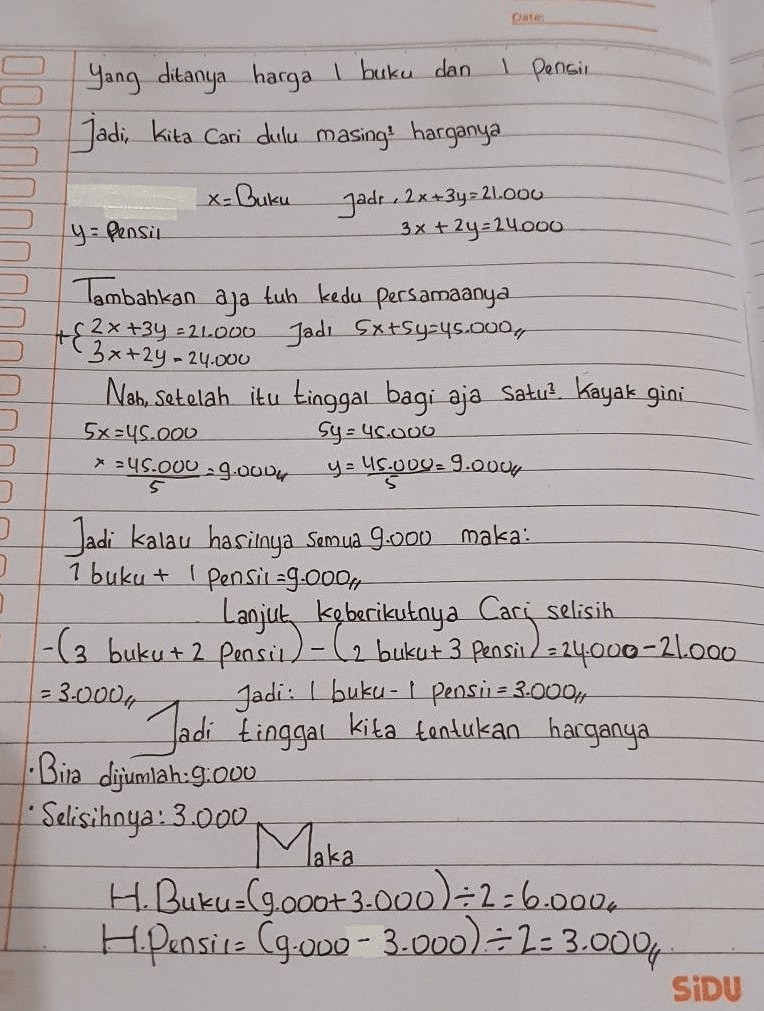 Date:
Yang ditanya harga 1 buku dan 1 Pensil
Jadi, kita Cari dulu masing² harganya
x = Buku Jadi, 2x+3y=21.000
y = Pensil 3x + 2y = 24.000
Tambahkan aja tuh kedu persamaanya
+{ 2x +3y = 21.000 Jadi 5x+5y=45.000,,
3x+2y = 24.000
Nah, setelah itu tinggal bagi aja satu². Kayak gini
5x = 45.000 5y = 45.000
x = 45.000/5 = 9.000,, y = 45.000/5 = 9.000,,
Jadi kalau hasilnya semua 9.000 maka:
1 buku + 1 Pensil = 9.000,,
Lanjut keberikutnya Cari selisih
-(3 buku + 2 Pensil) - (2 buku + 3 Pensil) = 24.000 - 21.000
= 3.000,, Jadi: 1 buku - 1 Pensil = 3.000,,
Jadi tinggal kita tentukan harganya
• Bila dijumlah: 9.000
• Selisihnya: 3.000
Maka
H. Buku = (9.000 + 3.000) ÷ 2 = 6.000,,
H. Pensil = (9.000 - 3.000) ÷ 2 = 3.000,,
SiDU